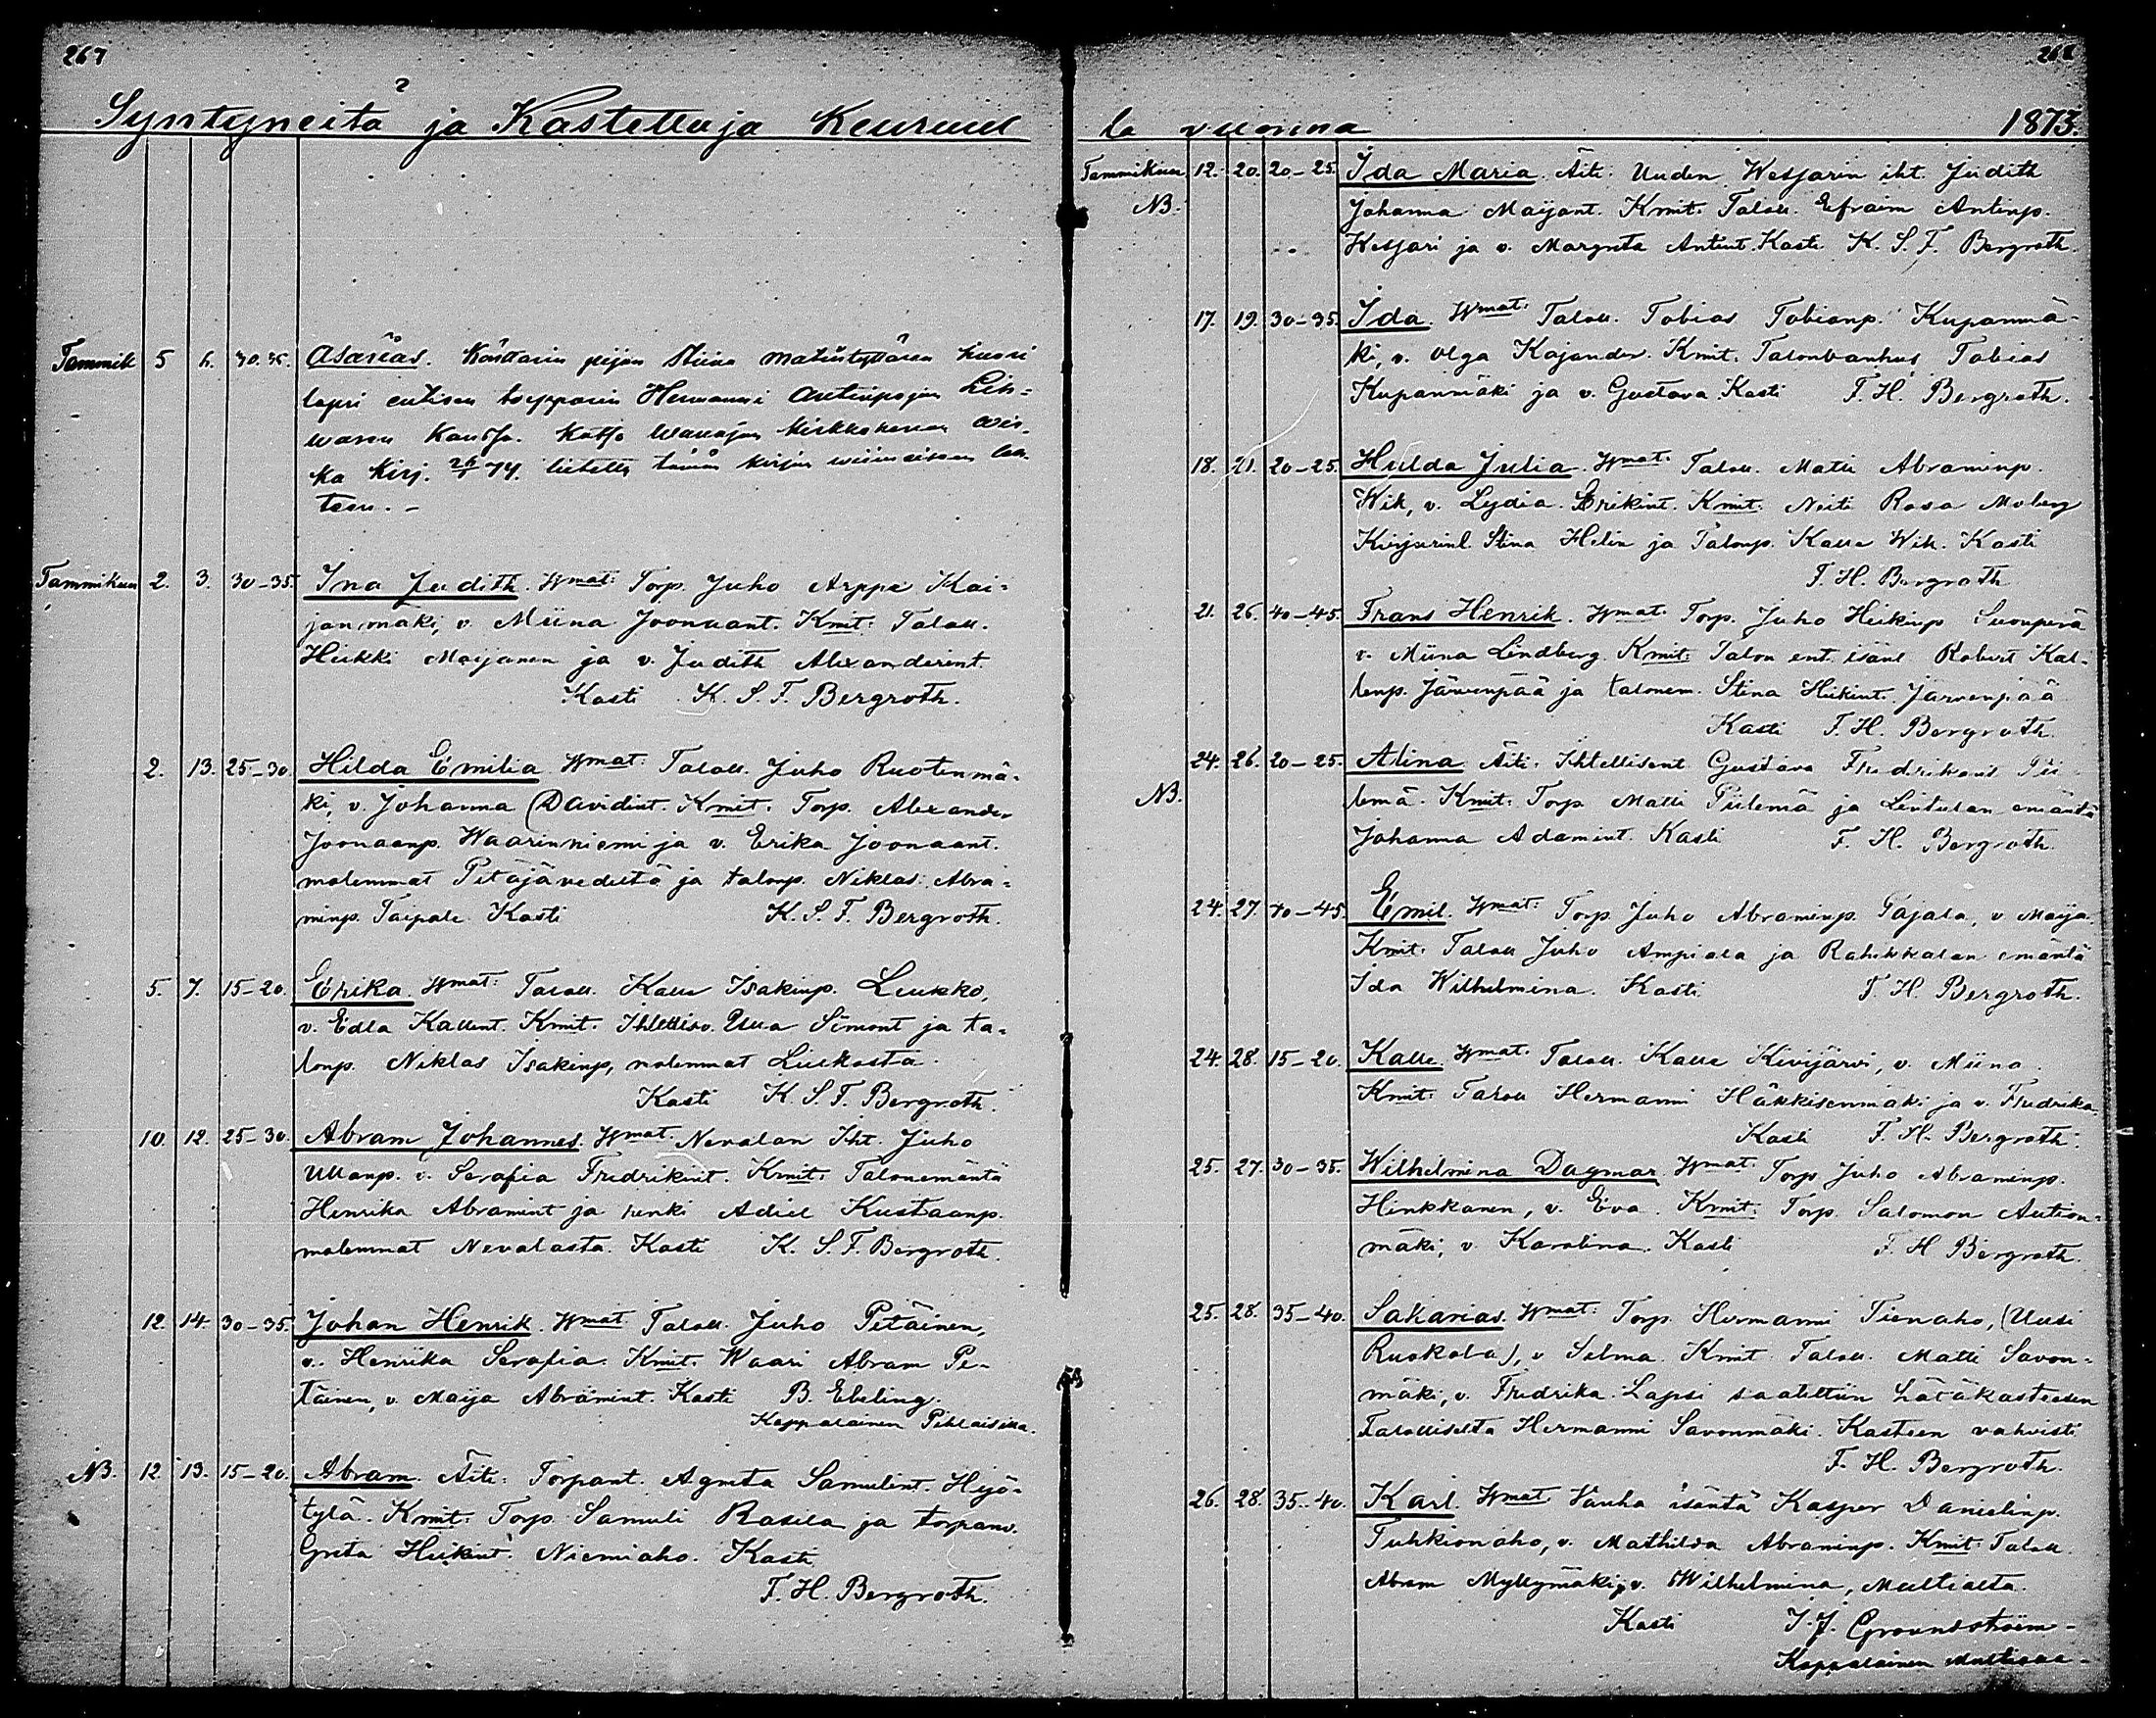 267
Syntyneitä ja Kastettuja Keuruul
Tammik 5 6. 30.35. Asarias.
lapsi entisen Hermanni Antinpojan
Kanssa. Katso
ka Kirj. 26/1 74. tämän kirjan wiimeiseen leh-
teen. -
Tammikuu 2. 3. 30-35. Ina Judith. Wmat: Torp. Juho Arppe Kai-
janmäki, v. Miina Joonaant. Kmit: Taloll.
Heikki Maijanen ja v. Judith Alexanderint
Kasti K. S. F. Bergroth.
2. 13. 25-30. Hilda Emilia Wmat: Taloll. Juho Ruotenmä-
ki, v. Johanna Davidint. Kmit. Torp. Alexander
Joonaanp. Waarinniemi ja v. Erika Joonaant.
molemmat Petäjävedeltä ja talonp. Niklas Abra-
minp. Taipale Kasti K. S. F. Bergroth.
5. 7. 15-20. Erika. Wmat: Taloll. Kalle Isakinp. Liukko,
v. Edla Kallent. Kmit. Ihtellisv. Ulla Simont ja ta-
lonp. Niklas Isakinp, molemmat Liukosta.
Kasti K. S. F. Bergroth.
10. 12. 25-30. Abram Johannes. Wmat. Nevalan Iht. Juho
Ullanp. v. Serafia Fredrikint. Kmit: Talonemäntä
Henrika Abramint ja renki Adiel Kustaanp.
molemmat Nevalasta. Kasti K. S. F. Bergroth.
12. 14. 30-35. Johan Henrik. Wmat Taloll. Juho Petäinen,
v. Henrika Serafia. Kmit. Waari Abram Pe-
täinen, v. Maija Abramint. Kasti B. Ebeling.
Kappalainen Pihlaissa.
NB. 12. 13. 15-20. Abram. Äiti: Torpant. Agneta Samulint. Hyö-
tylä. Kmit: Torp. Samuli Rasila ja torpanv.
Greta Heikint. Niemiaho. Kasti
F. H. Bergroth.
268
la vuonna 1873.
Tammikuu 12. 20. 20-25. Ida Maria. Äiti: Uuden Wesjarin iht. Judith
NB. Johanna Maijant. Kmit. Taloll. Efraim Antinp.
Wesjari ja v. Margreta Antint. Kasti K. S. F. Bergroth.
17. 19. 30-35. Ida. Wmat: Taloll. Tobias Tobianp. Kupanmä-
ki, v. Olga Kajander. Kmit. Talonvanhus Tobias
Kupanmäki ja v. Gustava. Kasti F. H. Bergroth.
18. 21. 20-25. Hulda Julia. Wmat: Taloll. Matti Abraminp.
Wih, v. Lydia Erikint. Kmit. Neiti Rosa Moberg
Stina Helin ja Talonp. Kalle Wih. Kasti
F. H. Bergroth
21. 26. 40-45. Frans Henrik. Wmat. Torp. Juho Heikinp Suonperä
v. Miina Lindberg. Kmit: Talon ent. isänt. Robert Kal-
lenp. Järvenpää ja talonem. Stina Heikint. Järvenpää
Kasti F. H. Bergroth.
24. 26. 20-25. Alina. Äiti. Ihtellisent Gustava Fredrikint Pii-
NB. lemä. Kmit: Torp Matti Piilemä ja Lintulan emäntä
Johanna Adamint. Kasti F. H. Bergroth.
24. 27. 40-45. Emil. Wmat: Torp. Juho Abraminp. Pajala, v. Maija
Kmit: Taloll Juho Ampiala ja Rahikkalan emäntä
Ida Wilhelmina. Kasti F. H. Bergroth.
24. 28. 15-20. Kalle. Wmat. Taloll. Kalle Kivijärvi, v. Miina.
Kmit: Taloll Hermanni Häkkisenmäki ja v. Fredrika.
Kasti F. H. Bergroth.
25. 27. 30-35. Wilhelmina Dagmar Wmat: Torp Juho Abraminp.
Hinkkanen, v. Eva. Kmit: Torp. Salomon Aution-
mäki, v. Karolina. Kasti F. H Bergroth.
25. 28. 35-40. Sakarias. Wmat: Torp. Hermanni Tienaho, (Uusi
Ruokola), v Selma. Kmit Taloll. Matti Savon-
mäki, v. Fredrika. Lapsi saatettiin hätäkasteesen
Talolliselta Hermanni Savonmäki. Kasteen vahvisti
F. H. Bergroth.
26. 28. 35-40. Karl. Wmat Vanha isäntä Kasper Danielinp.
Tuhkionaho, v. Mathilda Abraminp. Kmit: Taloll.
Abram Myllymäki, v. Wilhelmina, Multialta.
Kasti J. J. Groundstroem -
Kappalainen Multiaa -